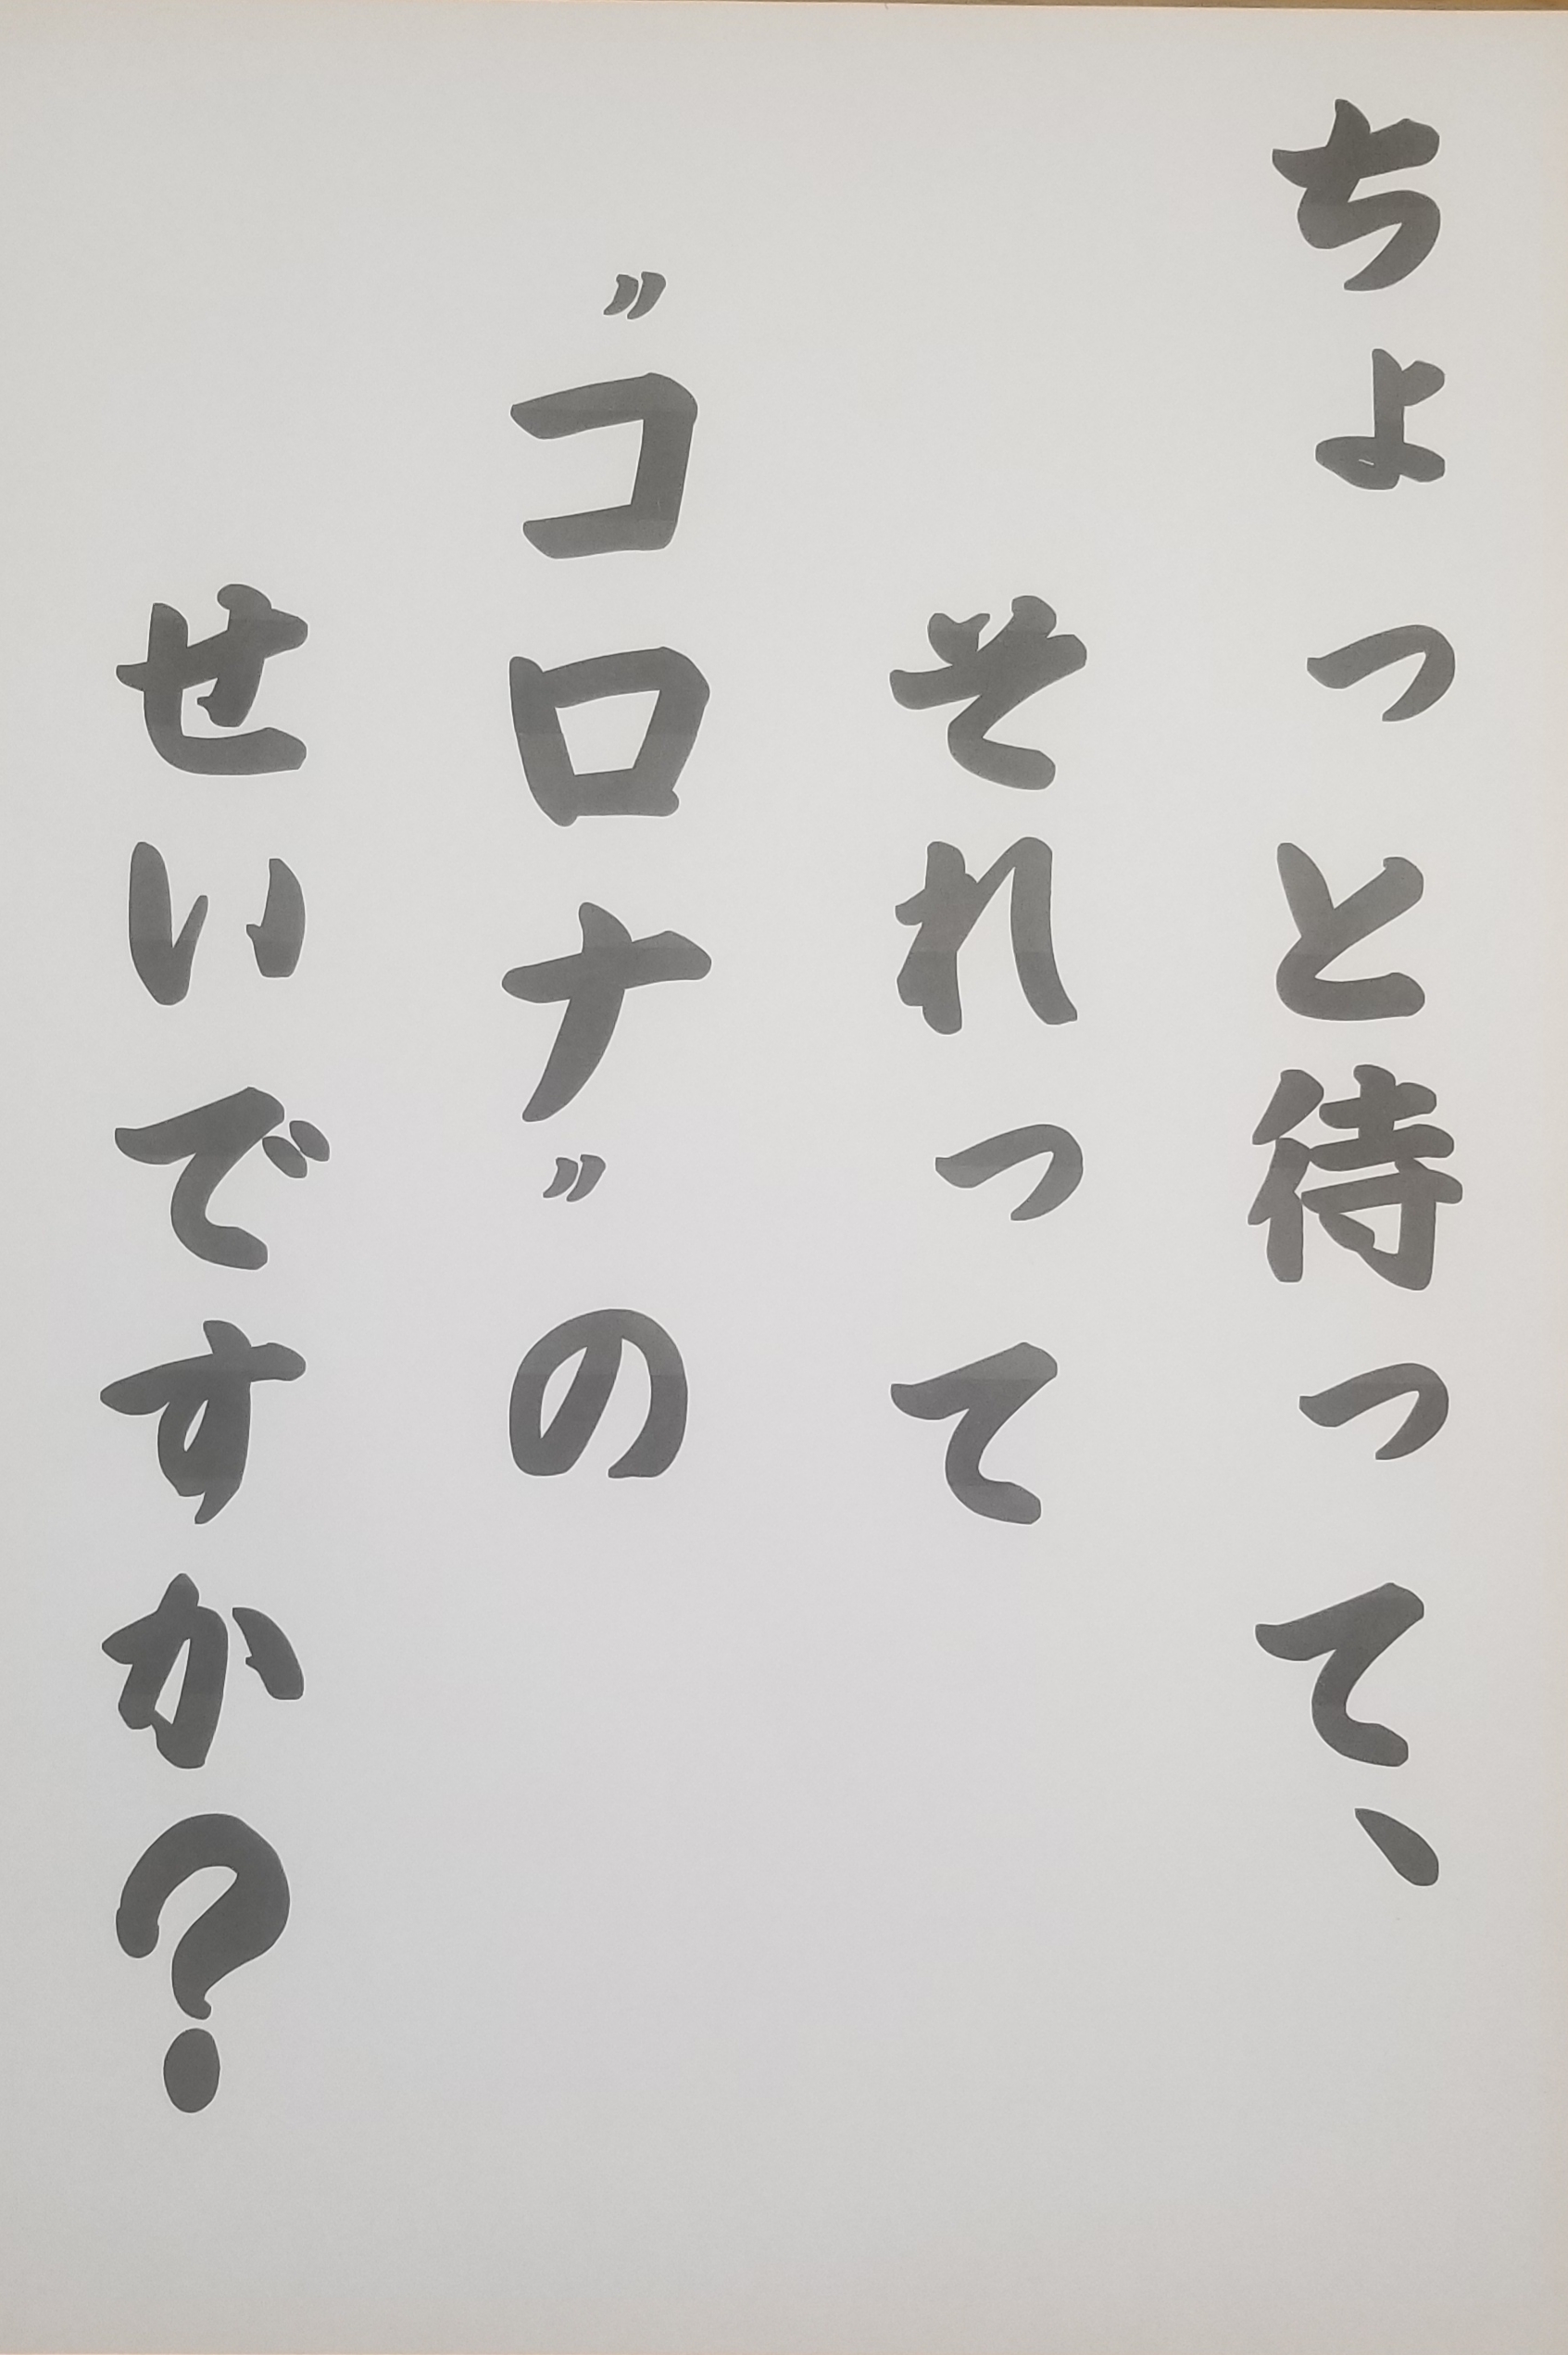 ちょっと待って、
それって
〃コロナ〃の
せいですか?